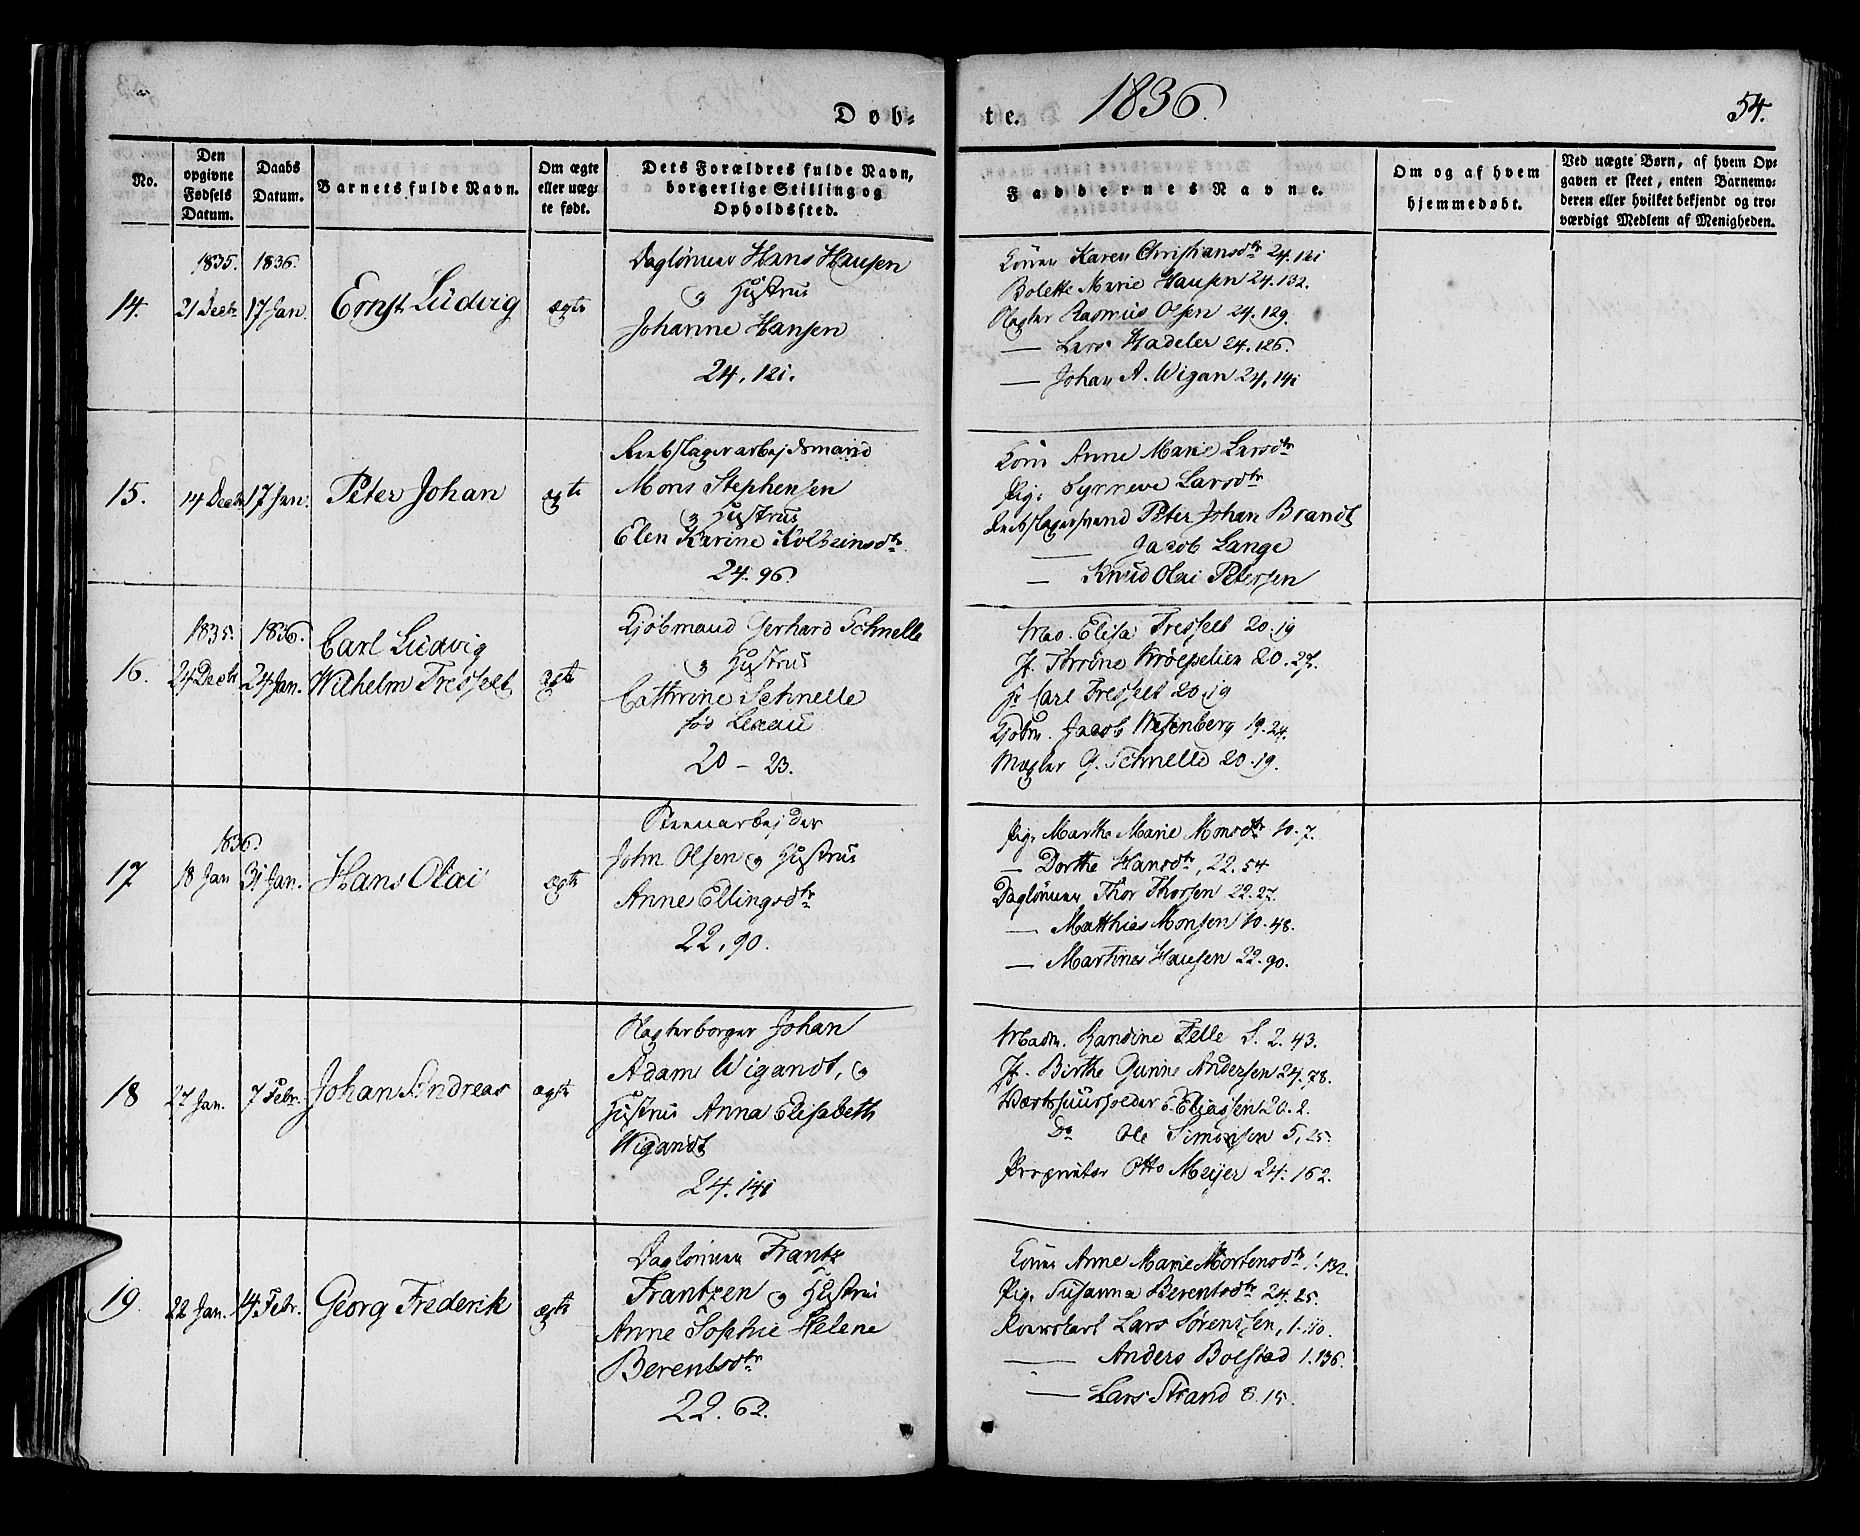 Døb-
te. 1836. 54.
No.
Den opgivne Fødsels Datum.
Daabs Datum.
Barnets fulde Navn.
Om ægte eller uæg- te født.
Dets Forældres fulde Navn, borgerlige Stilling og Opholdssted.
Faddernes Navne.
Om og af hvem hjemmedøbt.
Ved uægte Børn, af hvem Op- gaven er skeet, enten Barnemo- deren eller hvilket bekjendt og tro- værdigt Medlem af Menigheden.
1835. 1836.
14. 21 Decbr 17 Jan. Ernst Ludvig ægte
Daglønner Hans Hansen
og Hustrue
Johanne Hansen
24, 121.
Konen Karen Christiansdtr 24.121
Bolette Marie Hansen 24.132.
Rasmus Olsen 24.129.
— Lars Hadeler 24.126.
— Johan A. Wigan 24.141
15. 14 Decbr 17 Jan. Peter Johan ægte
Reebslagerarbejdsmand
Mons Stephensen
og Hustrue
Elen Karine Kolbeinsdtr
24.96.
Kone Anne Marie Larsdtr
Pige Synneve Larsdtr
Reebslagersvend Peter Johan Brandt
— Jacob Lange
— Knud Olai Petersen
1835. 1836.
16. 24 Decbr 24 Jan. Carl Ludvig
Wilhelm Tresselt ægte
Kjøbmand Gerhard Schnelle
og Hustrue
Cathrine Schnelle
fød
20 - 23.
Mad. Elisa Tresselt 20.19
Jf. Krøepelien 20.27.
Hr Carl Tresselt 20.19
Kjøbm. Jacob Wesenberg 19.24.
Mægler G. Schnelle 20.19.
1836.
17 18 Jan 31 Jan. Hans Olai ægte
Steenarbejder
John Olsen og Hustrue
Anne Ellingsdtr
22, 90.
Pige Marthe Marie Monsdtr 10.7.
— Dorthe Hansdtr, 22.54
Daglønner Thor Thorsen 22.27.
— Matthias Monsen 10.48.
— Martines Hansen 22.90.
18 27 Jan. 7 Febr. Johan Andreas ægte
Johan
Adam Wigandt, og
Hustrue Anna Elisabeth
Wigandt
24.141
Madm. Randine Felle S. 2.43.
Jf. Birthe Gurine Andersen 24.78.
Værtshuusholder E. Eliassen 20.2.
Do Ole Simonsen 5,25.
Proprietær Otto Meyer 24.162.
19 22 Jan. 14 Febr. Georg Frederik ægte
Daglønner Frantz
Frantzen og Hustrue
Anne Sophie Helene
Berentsdtr
22.62.
Konen Anne Marie Mortensdtr 1.132.
Pige Susanna Berentsdtr 24.25.
Roerskarl Lars Sørensen, 1.110.
— Anders Bolstad 1.136.
— Lars Strand 8.15.